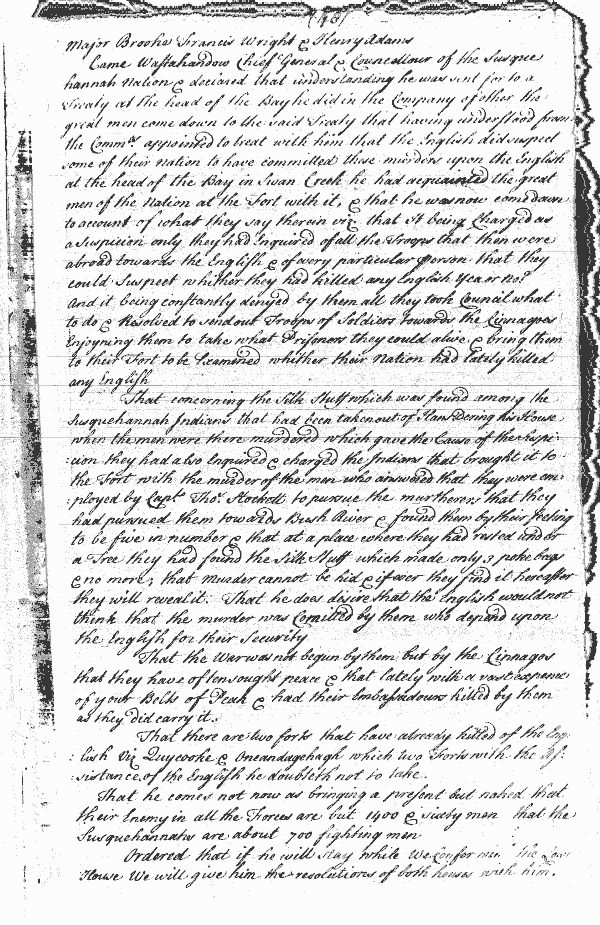 (48)
Major Brooke Francis Wright & Henry Adams
Came Wastahandow Chief General & Councellour of the Susque
hannah Nation & declared that understanding he was sent for to a
Treaty at the head of the Bay he did in the Company of other the
great men come down to the said Treaty that having understood from
the Commrs appointed to treat with him that the English did suspect
some of their nation to have committed those murders upon the English
at the head of the Bay in Swan Creek he had acquainted the great
men of the Nation at the Fort with it, & that he was now come down
to account of what they say therein viz. that It being Charged as
a Suspition only they had Inquired of all the Troops that then were
abroad towards the English & of every particular person that they
could Suspect whether they had killed any English Yea or no?
And it being constantly denyed by them all they took Council what
to do & Resolved to send out Troops of Soldiers towards the Cinnagoes
Enjoyning them to take what Prisoners they could alive & bring them
to their Fort to be Examined whether their Nation had lately killed
any English
That concerning the Silk Stuff which was found among the
Susquehannah Indians that had been taken out of Hans Dening his House
when the men were there murdered which gave the Cause of the suspi:
:cion they had also Enquired & charged the Indians that brought it to
the Fort with the murder of the men who answered that they were em:
ployed by Capt Thos. Stockett to pursue the murtherers that they
had pursued them towards Bush River & found them by their footing
to be five in number & that at a place where they had rested under
a Tree they had found the Silk Stuff which made only 3 poke bags
& no more; that murder cannot be hid & if ever they find it hereafter
they will reveal it. That he does desire that the English would not
think that the murder was Comitted by them who depend upon
the English for their Security
That the War was not begun by them but by the Cinnagos
that they have often sought peace & that lately with a vast expence
of your Belts of Peak & had their Embassadours killed by them
as they did carry it.
That there are two forts that have already killed of the Eng:
:lish Viz Quycooke & Oneandagehagh which two Forts with the As:
:sistance of the English he doubteth not to take.
That he comes not now as bringing a present but naked that
their Enemy in all the Forces are but 1400 & sixty men that the
Susquehannahs are about 700 fighting men
Ordered that if he will stay while We Confer with the Low
House We will give him the resolutions of both houses with him.